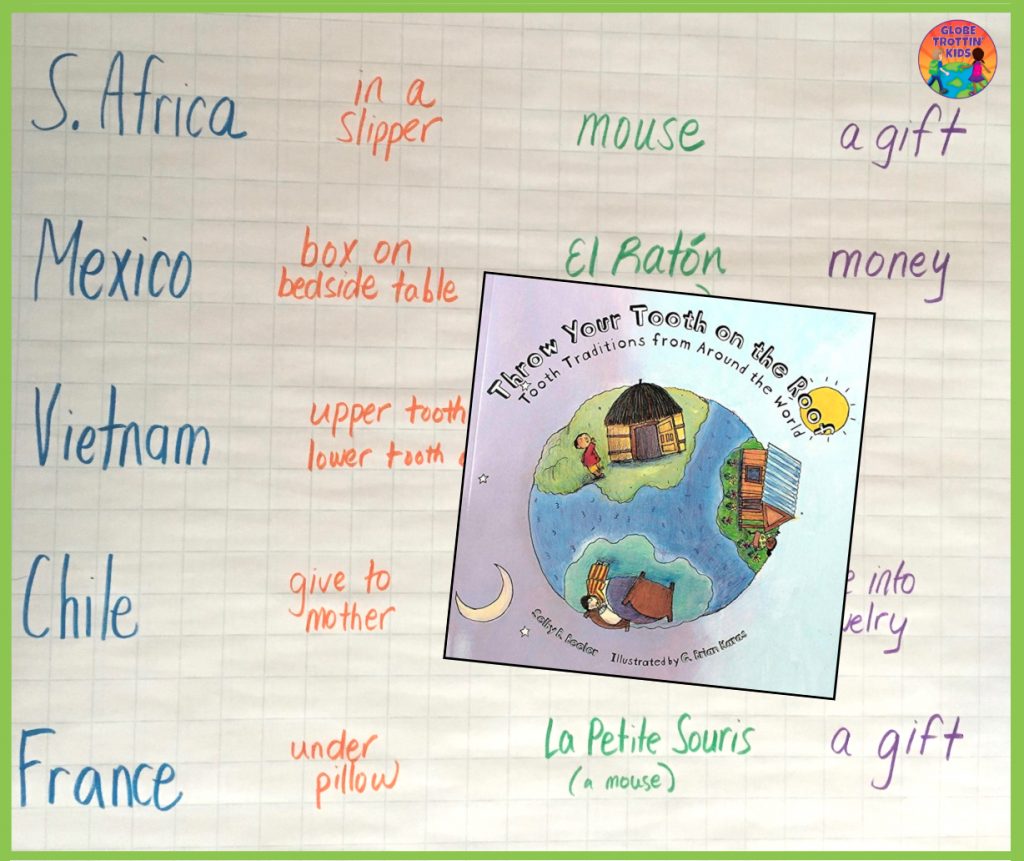 GLOBE
TROTTIN'
KIDS
S. Africa
in a
slipper
mouse
a gift
Mexico
box on
bedside table
El Ratón
money
Vietnam
upper tooth
lower tooth
Chile
give to
mother
into
France
under
pillow
La Petite Souris
(a mouse)
a gift
Throw Your Tooth on the Roof
Tooth Traditions from Around the World
Selby B. Beeler
Illustrated by G. Brian Karas